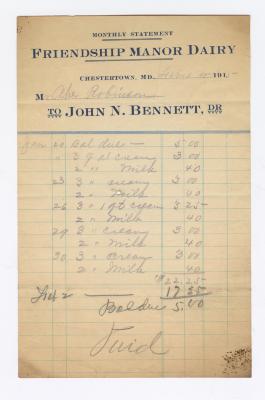 MONTHLY STATEMENT
FRIENDSHIP MANOR DAIRY
CHESTERTOWN, MD. 191
M Robinson
TO JOHN N. BENNETT, DR
Jan 20 Bal due — 5 00
" 3 qts creamy 3 00
2 " Milk 40
23 3 " creamy 3 00
2 " Milk 40
26 3 " 1 pt cream 3 25
2 " Milk 40
29 3 " creamy 3 00
2 " Milk 40
30 3 " creamy 3 00
2 " Milk 40
$22.25
Feb 2 — 17 25
Bal due 5.00
Paid